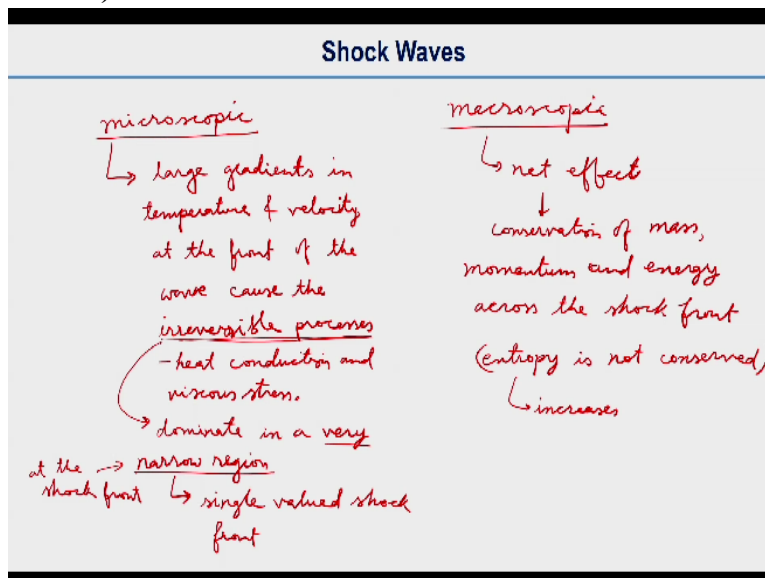 Shock Waves
microscopic
large gradients in
temperature & velocity
at the front of the
wave cause the
irreversible processes
- heat conduction and
viscous stress.
dominate in a very
at the → narrow region
shock front
single valued shock
front
macroscopic
net effect
conservation of mass,
momentum and energy
across the shock front
(entropy is not conserved)
increases